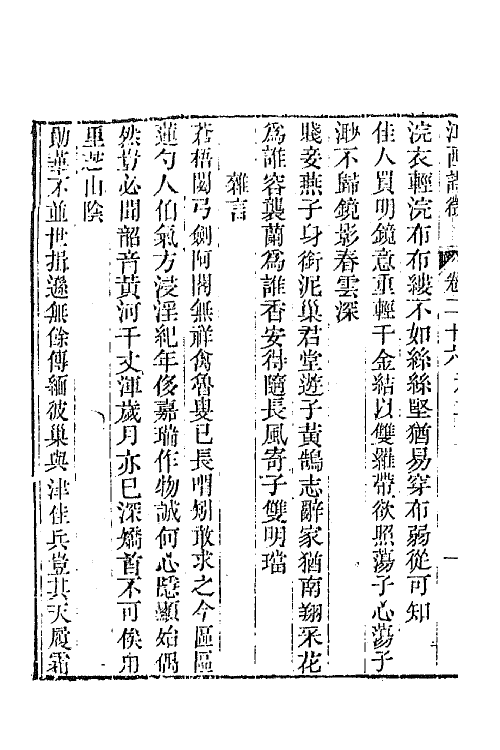 江西詩徵 卷二十六
浣衣輕浣布布縷不如絲絲堅猶易穿布弱從可知
佳人買明鏡意重輕千金結以雙羅帶欲照蕩子心蕩子
渺不歸鏡影春雲深
賤妾燕子身銜泥巢君堂遊子黃鵠志辭家猶南翔采花
為誰容襲蘭為誰香安得隨長風寄子雙明璫
雜言
蒼梧閟弓劍阿閣無祥禽魯叟已長喟矧敢求之今區區
蓮勺人伯氣方浸淫紀年侈嘉瑞作物誠何心隱顯始偶
然豈必聞韶音黃河千丈渾歲月亦已深矯首不可俟
里悲山陰
勛華不並世揖遜無餘傳緬彼巢與津佳兵豈其天履霜